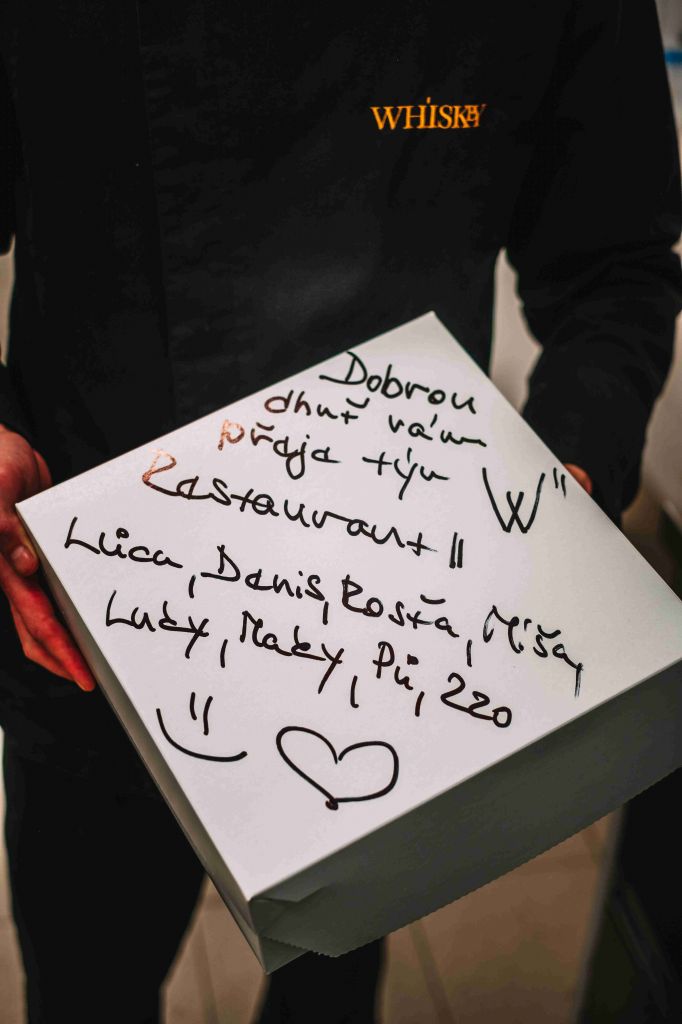 WHISKEY
Dobrou
chuť vám
přeje tým
Restaurant "W"
Lůca, Denis, Rosťa, Míša,
Lucky, Macky, Pů, Zzo